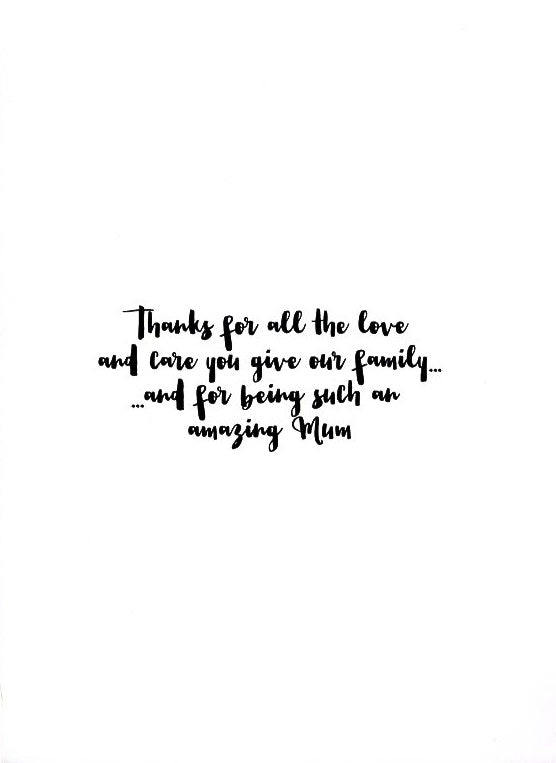 Thanks for all the love
and care you give our family...
...and for being such an
amazing Mum